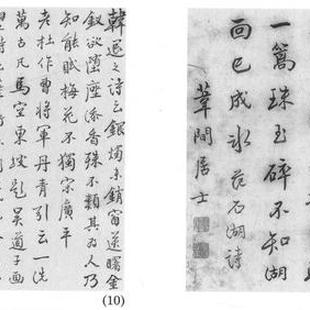 韓退之詩云銀燭未銷窗送曙金
釵欲墮座添香殊不類其為人乃
知能賦梅花不獨宋廣平
老杜作曹將軍丹青引云一洗
萬古凡馬空東坡題吳道子画
一篙珠玉碎不知湖
面已成冰范石湖詩
葦間居士
(10)